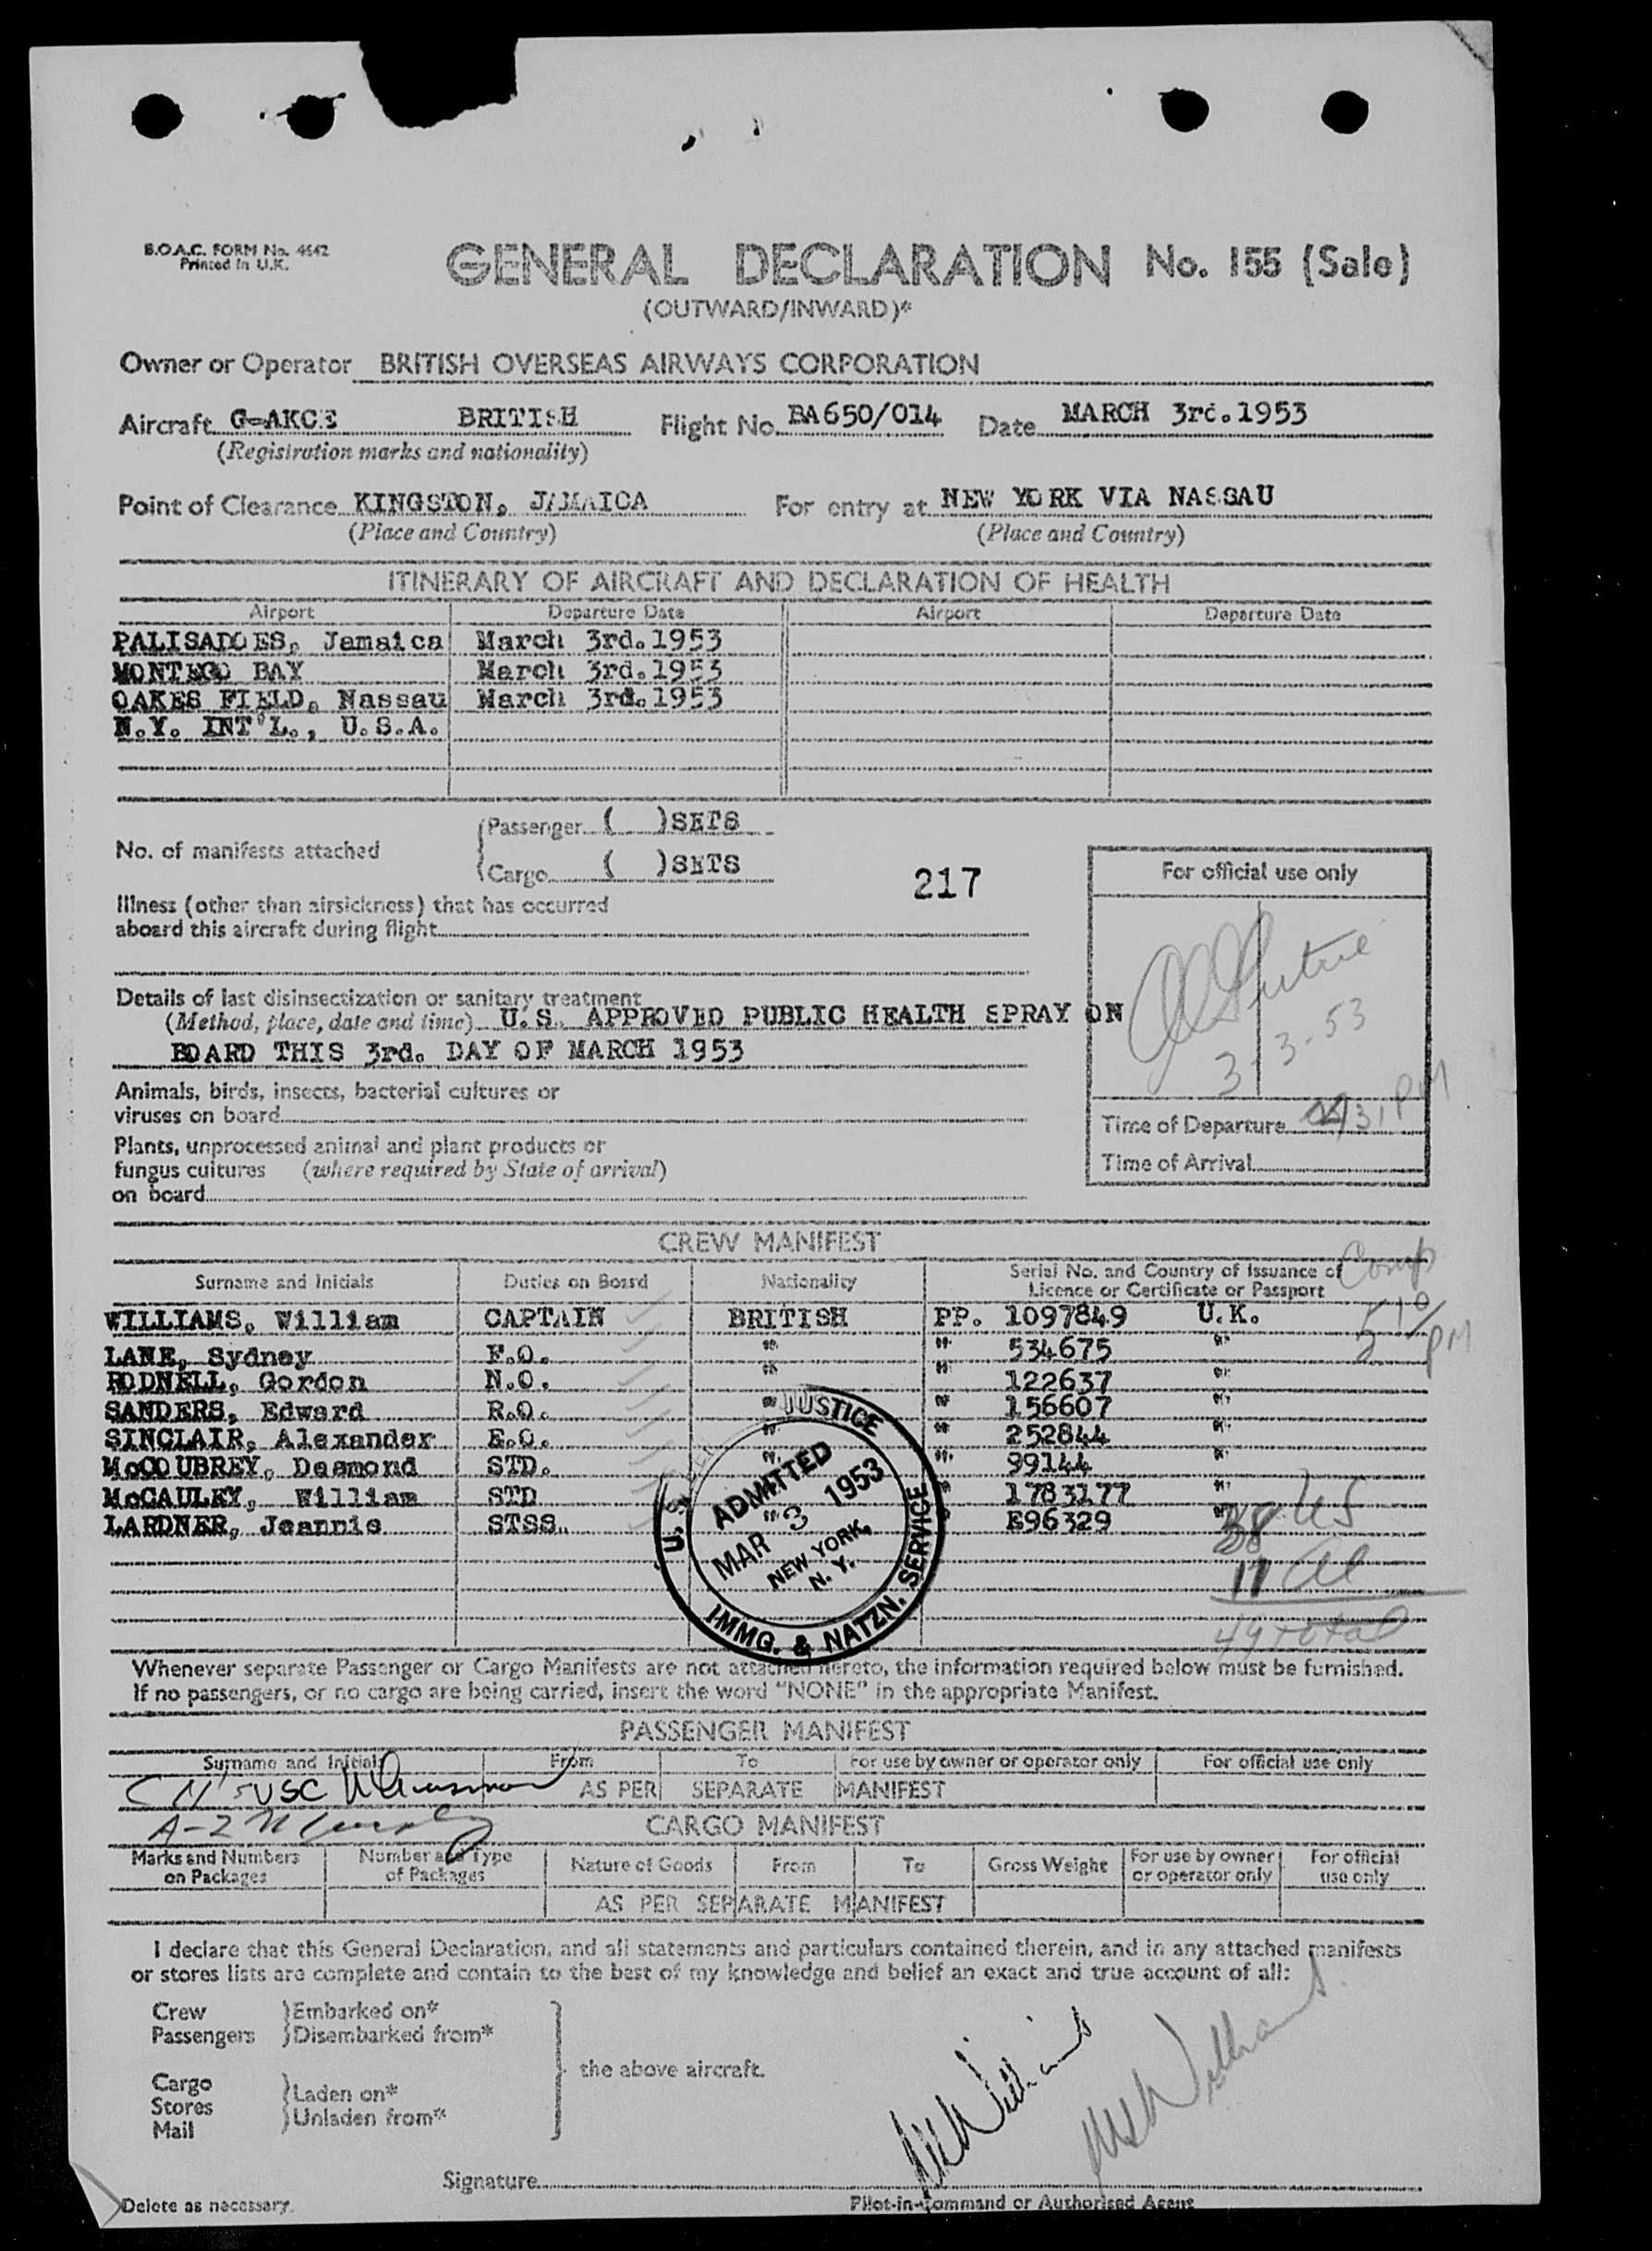 B.O.A.C. FORM No. 4642
Printed in U.K.
GENERAL DECLARATION No. 155 (Sale)
(OUTWARD/INWARD)*
Owner or Operator BRITISH OVERSEAS AIRWAYS CORPORATION
Aircraft G-AKCE BRITISH Flight No. BA650/014 Date MARCH 3rd.1953
(Registration marks and nationality)
Point of Clearance KINGSTON, JAMAICA For entry at NEW YORK VIA NASSAU
(Place and Country) (Place and Country)
ITINERARY OF AIRCRAFT AND DECLARATION OF HEALTH
Airport Departure Date Airport Departure Date
PALISADOES, Jamaica March 3rd.1953
MONTEGO BAY March 3rd.1953
OAKES FIELD, Nassau March 3rd.1953
N.Y. INT'L., U.S.A.
No. of manifests attached
Passenger ( )SETS
Cargo ( )SETS
217
For official use only
Illness (other than airsickness) that has occurred
aboard this aircraft during flight
3-3-53
Details of last disinsectization or sanitary treatment
(Method, place, date and time) U.S. APPROVED PUBLIC HEALTH SPRAY ON
BOARD THIS 3rd. DAY OF MARCH 1953
Animals, birds, insects, bacterial cultures or
viruses on board
Time of Departure PM
Plants, unprocessed animal and plant products or
fungus cultures (where required by State of arrival)
on board
Time of Arrival
CREW MANIFEST
Surname and Initials Duties on Board Nationality Serial No. and Country of Issuance of
Licence or Certificate or Passport
Comp
5 10/PM
WILLIAMS, William CAPTAIN BRITISH PP. 1097849 U.K.
LANE, Sydney F.O. " " 534675 "
RODNELL, Gordon N.O. " " 122637 "
SANDERS, Edward R.O. " " 156607 "
SINCLAIR, Alexander E.O. " " 252844 "
McCOUBREY, Desmond STD. " " 99144 "
McCAULEY, William STD " " 1783177 "
LARDNER, Jeannie STSS. " " E96329 "
38 US
11 Al
49 total
U.S. JUSTICE
IMMG. & NATZN. SERVICE
ADMITTED
MAR 3 1953
NEW YORK,
N. Y.
Whenever separate Passenger or Cargo Manifests are not attached hereto, the information required below must be furnished.
If no passengers, or no cargo are being carried, insert the word "NONE" in the appropriate Manifest.
PASSENGER MANIFEST
Surname and Initials From To For use by owner or operator only For official use only
AS PER SEPARATE MANIFEST
CARGO MANIFEST
Marks and Numbers on Packages Number and Type of Packages Nature of Goods From To Gross Weight For use by owner or operator only For official use only
AS PER SEPARATE MANIFEST
I declare that this General Declaration, and all statements and particulars contained therein, and in any attached manifests
or stores lists are complete and contain to the best of my knowledge and belief an exact and true account of all:
Crew Embarked on*
Passengers Disembarked from*
the above aircraft.
Cargo
Stores Laden on*
Mail Unladen from*
Signature
Pilot-in-Command or Authorised Agent
Delete as necessary.